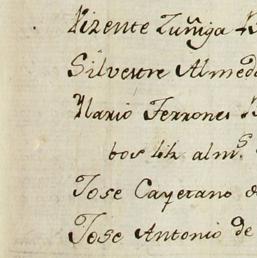 Vizente Zuñiga
Silvestre Almeda
Ilario Terrones
Jose Cayetano
Jose Antonio de